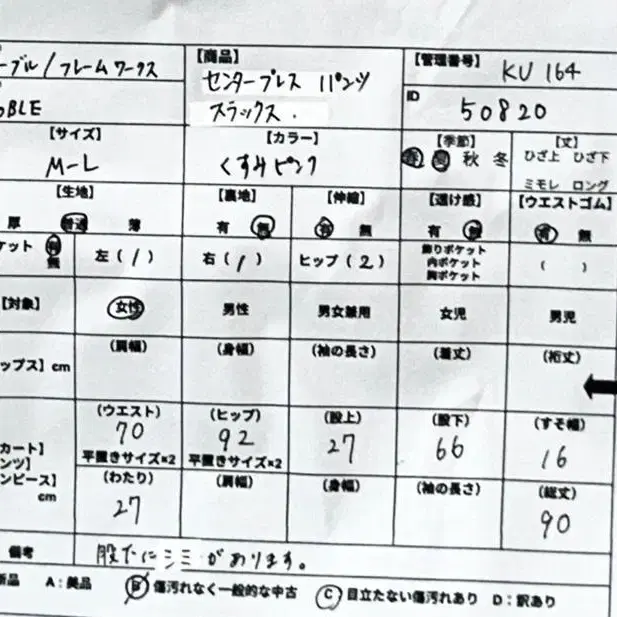 ーブル/フレームワークス
【商品】
センタープレス パンツ
スラックス.
【管理番号】
KU 164
OBLE
ID
50820
【サイズ】
M-L
【カラー】
くすみピンク
【季節】
春 夏 秋 冬
【丈】
ひざ上 ひざ下
ミモレ ロング
【生地】
厚 普通 薄
【裏地】
有 無
【伸縮】
有 無
【透け感】
有 無
【ウエストゴム】
有 無
ケット 有
無
左 (1)
右 (1)
ヒップ (2)
飾りポケット
内ポケット
胸ポケット
( )
【対象】
女性
男性
男女兼用
女児
男児
ップス】cm
(肩幅)
(身幅)
(袖の長さ)
(着丈)
(裄丈)
カート】
ンツ】
ンピース】
cm
(ウエスト)
70
平置きサイズ×2
(ヒップ)
92
平置きサイズ×2
(股上)
27
(股下)
66
(すそ幅)
16
(わたり)
27
(肩幅)
(身幅)
(袖の長さ)
(総丈)
90
備考
股下にシミがあります。
新品 A:美品 B 傷汚れなく一般的な中古 C 目立たない傷汚れあり D:訳あり